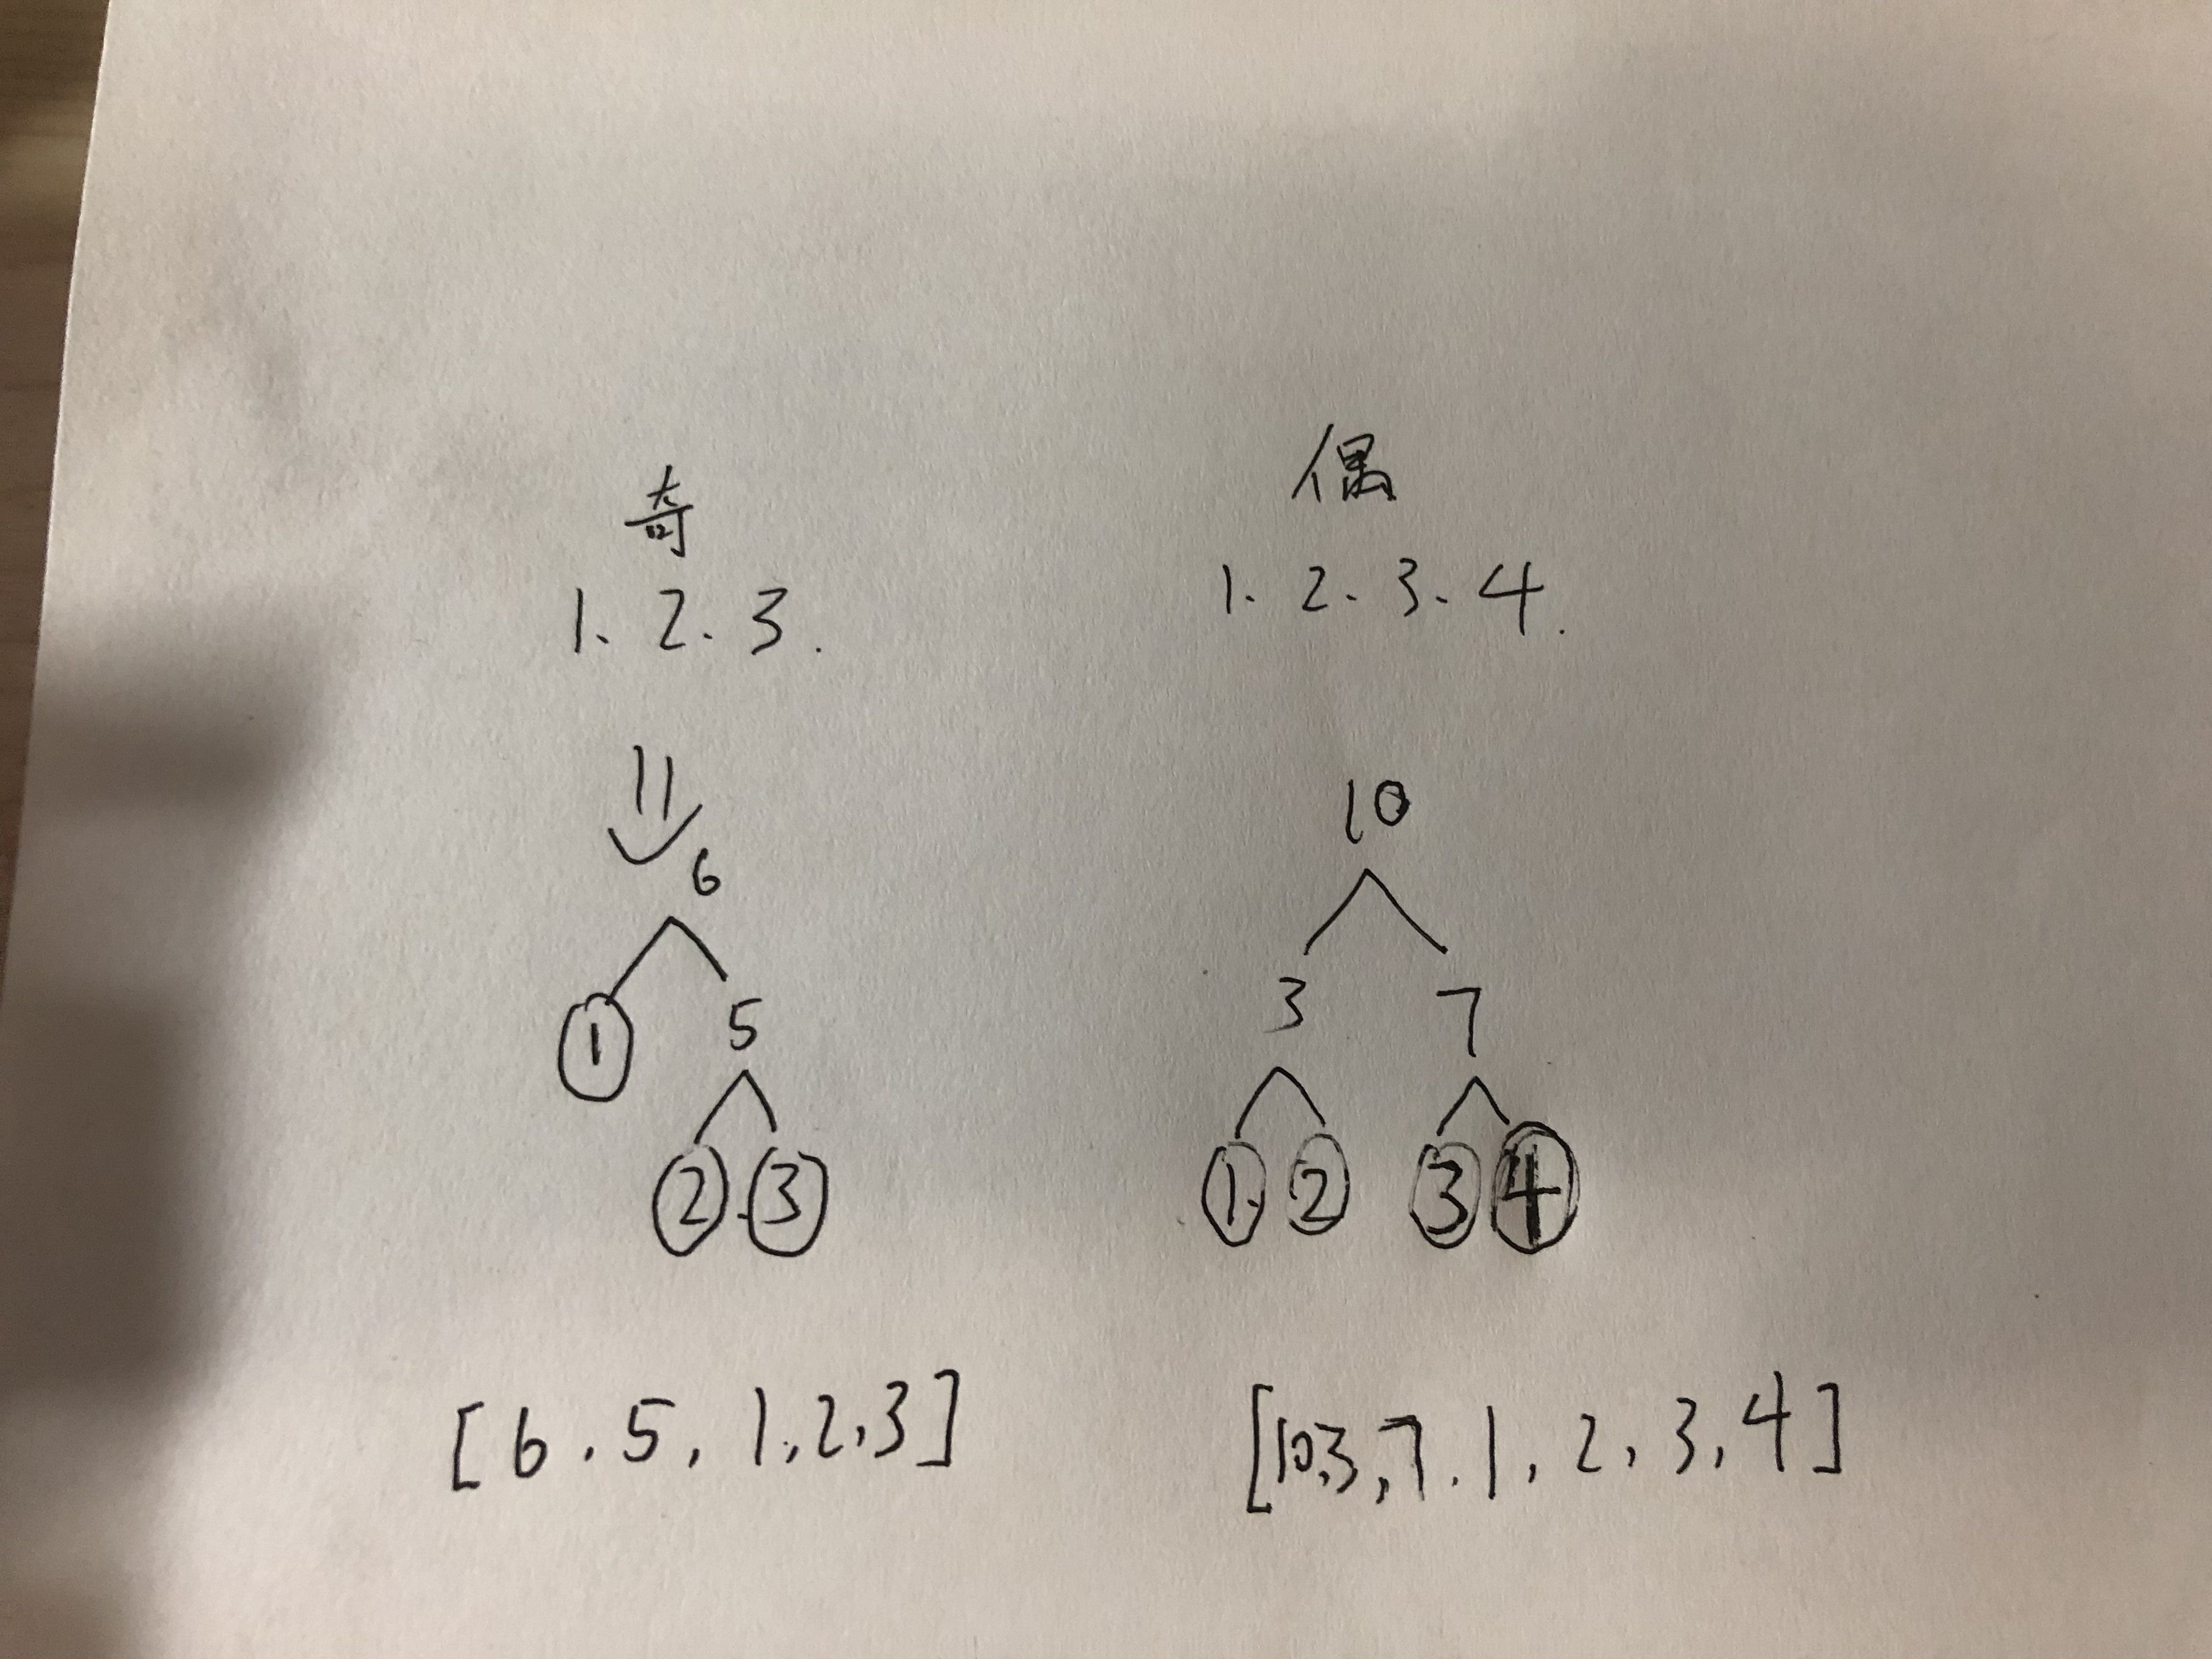 奇
1、2、3.
6
1 5
2、3
[6,5,1,2,3]
偶
1、2、3、4.
10
3 7
1、2 3 4
[10,3,7,1,2,3,4]